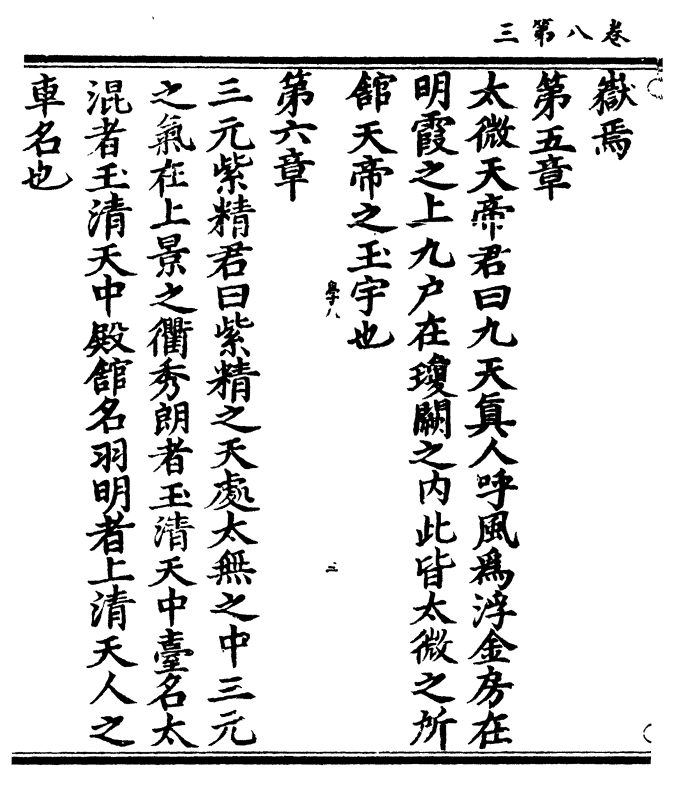 卷八第三
嶽焉
第五章
太微天帝君曰九天眞人呼風爲浮金房在
明霞之上九户在瓊闕之内此皆太微之所
舘天帝之玉宇也
學八
三
第六章
三元紫精君曰紫精之天處太無之中三元
之氣在上景之衢秀朗者玉清天中臺名太
混者玉清天中殿舘名羽明者上清天人之
車名也